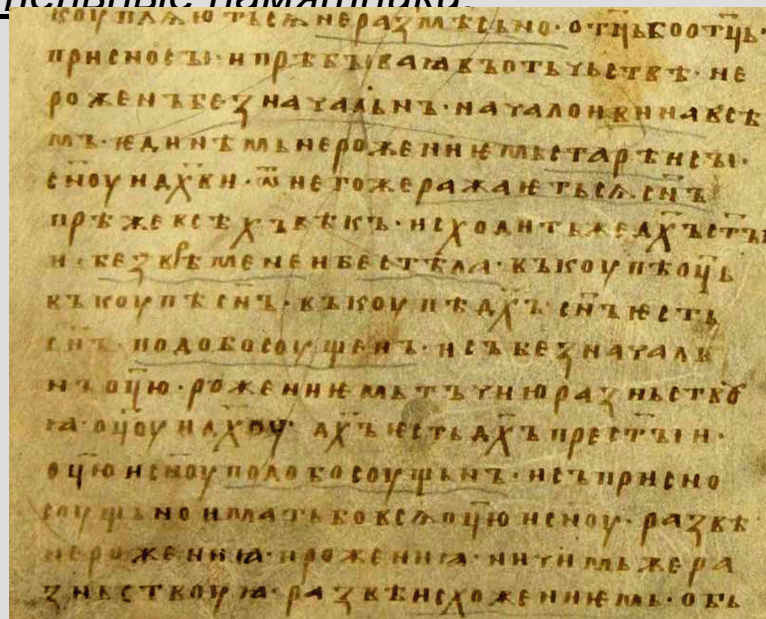 коупляютьсѧ неразмѣсьно· отц҃ь бо отц҃ь·
присносы· и прѣбываꙗ въ отьчьствѣ· не
роженъ безначальнъ· начало и вина всѣ
мъ· ѥдинѣмь нерожениѥмь старѣи сы·
сн҃оу и дх҃ви· ѿ негоже ражаѥтьсѧ сн҃ъ
прѣже всѣхъ вѣкъ· исходитьже дх҃ъ ст҃ы
и· безврѣмене и бестѣла· въкоупѣ оц҃ь
въкоупѣ сн҃ъ· въкоупѣ дх҃ъ сн҃ъ ѥсть
сн҃ъ· подобосоущенъ· и събезначаль
нъ оц҃ю· рожениѥмь тъчию разньство
ꙗ оц҃оу и дх҃оу· дх҃ъ ѥсть дх҃ъ прест҃ыи·
оц҃ю и сн҃оу подобосоущьнъ· и съприсно
соущьно имать бо всѧ оц҃ю и сн҃оу· развѣ
нерожениꙗ· и рожениꙗ· ничимьже ра
зньствоуꙗ· развѣ исхожениѥмь· объ